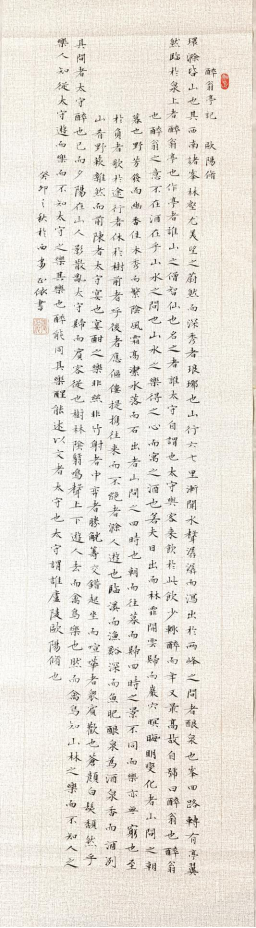 醉翁亭記 歐陽脩
環滁皆山也其西南諸峯林壑尤美望之蔚然而深秀者琅琊也山行六七里漸聞水聲潺潺而瀉出於兩峰之間者釀泉也峯回路轉有亭翼
然臨於泉上者醉翁亭也作亭者誰山之僧智仙也名之者誰太守自謂也太守與客來飲於此飲少輒醉而年又最高故自號曰醉翁也醉翁
也醉翁之意不在酒在乎山水之間也山水之樂得之心而寓之酒也若夫日出而林霏開雲歸而巖穴暝晦明變化者山間之朝
暮也野芳發而幽香佳木秀而繁陰風霜高潔水落而石出者山間之四時也朝而往暮而歸四時之景不同而樂亦無窮也至
於負者歌於途行者休於樹前者呼後者應傴僂提攜往來而不絕者滁人遊也臨溪而漁谿深而魚肥釀泉為酒泉香而酒洌
山肴野蔌雜然而前陳者太守宴也宴酣之樂非絲非竹射者中弈者勝觥籌交錯起坐而諠譁者眾賓歡也蒼顏白髮頹然乎
其間者太守醉也已而夕陽在山人影散亂太守歸而賓客從也樹林陰翳鳴聲上下遊人去而禽鳥樂也然而禽鳥知山林之樂而不知人之
樂人知從太守遊而樂而不知太守之樂其樂也醉能同其樂醒能述以文者太守也太守謂誰廬陵歐陽脩也
癸卯之秋於西 書